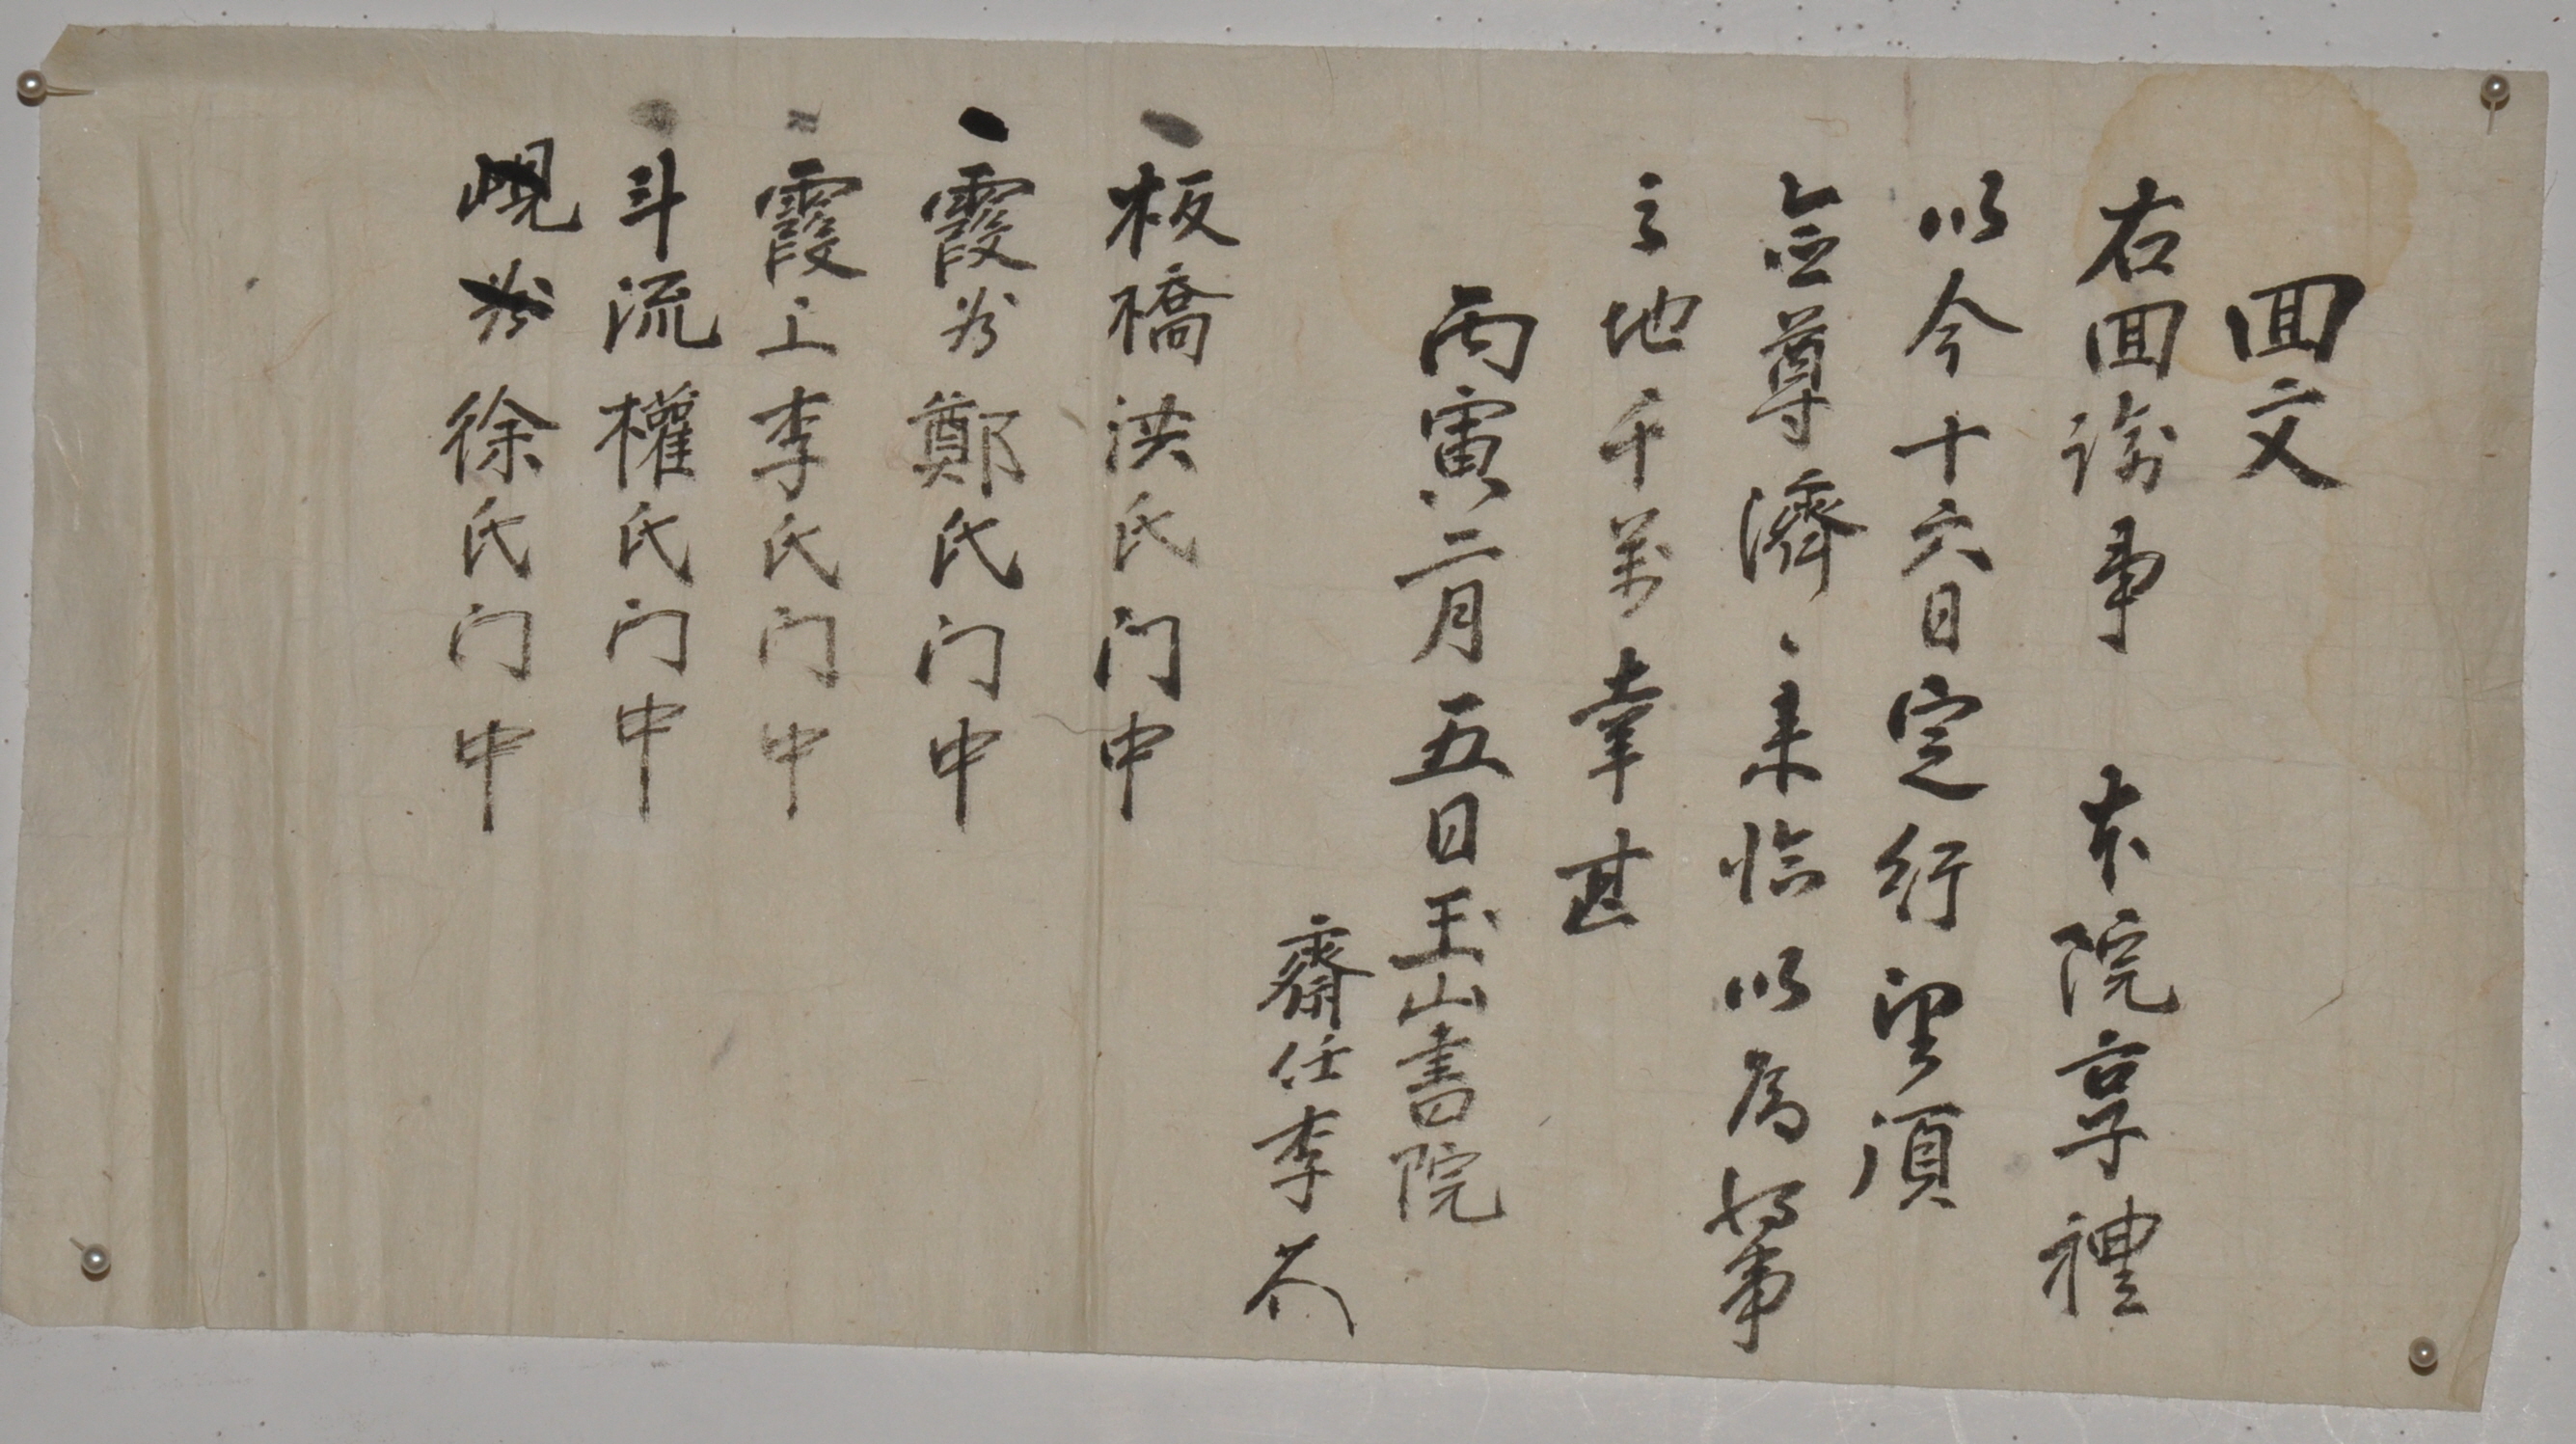 回文
右回諭事 本院享禮
以今十六日定行望須
僉尊濟、來臨以爲好事
之地千萬幸甚
丙寅二月五日玉山書院
齋任李
板橋洪氏門中
霞谷鄭氏門中
霞上李氏門中
斗流權氏門中
峴谷徐氏門中